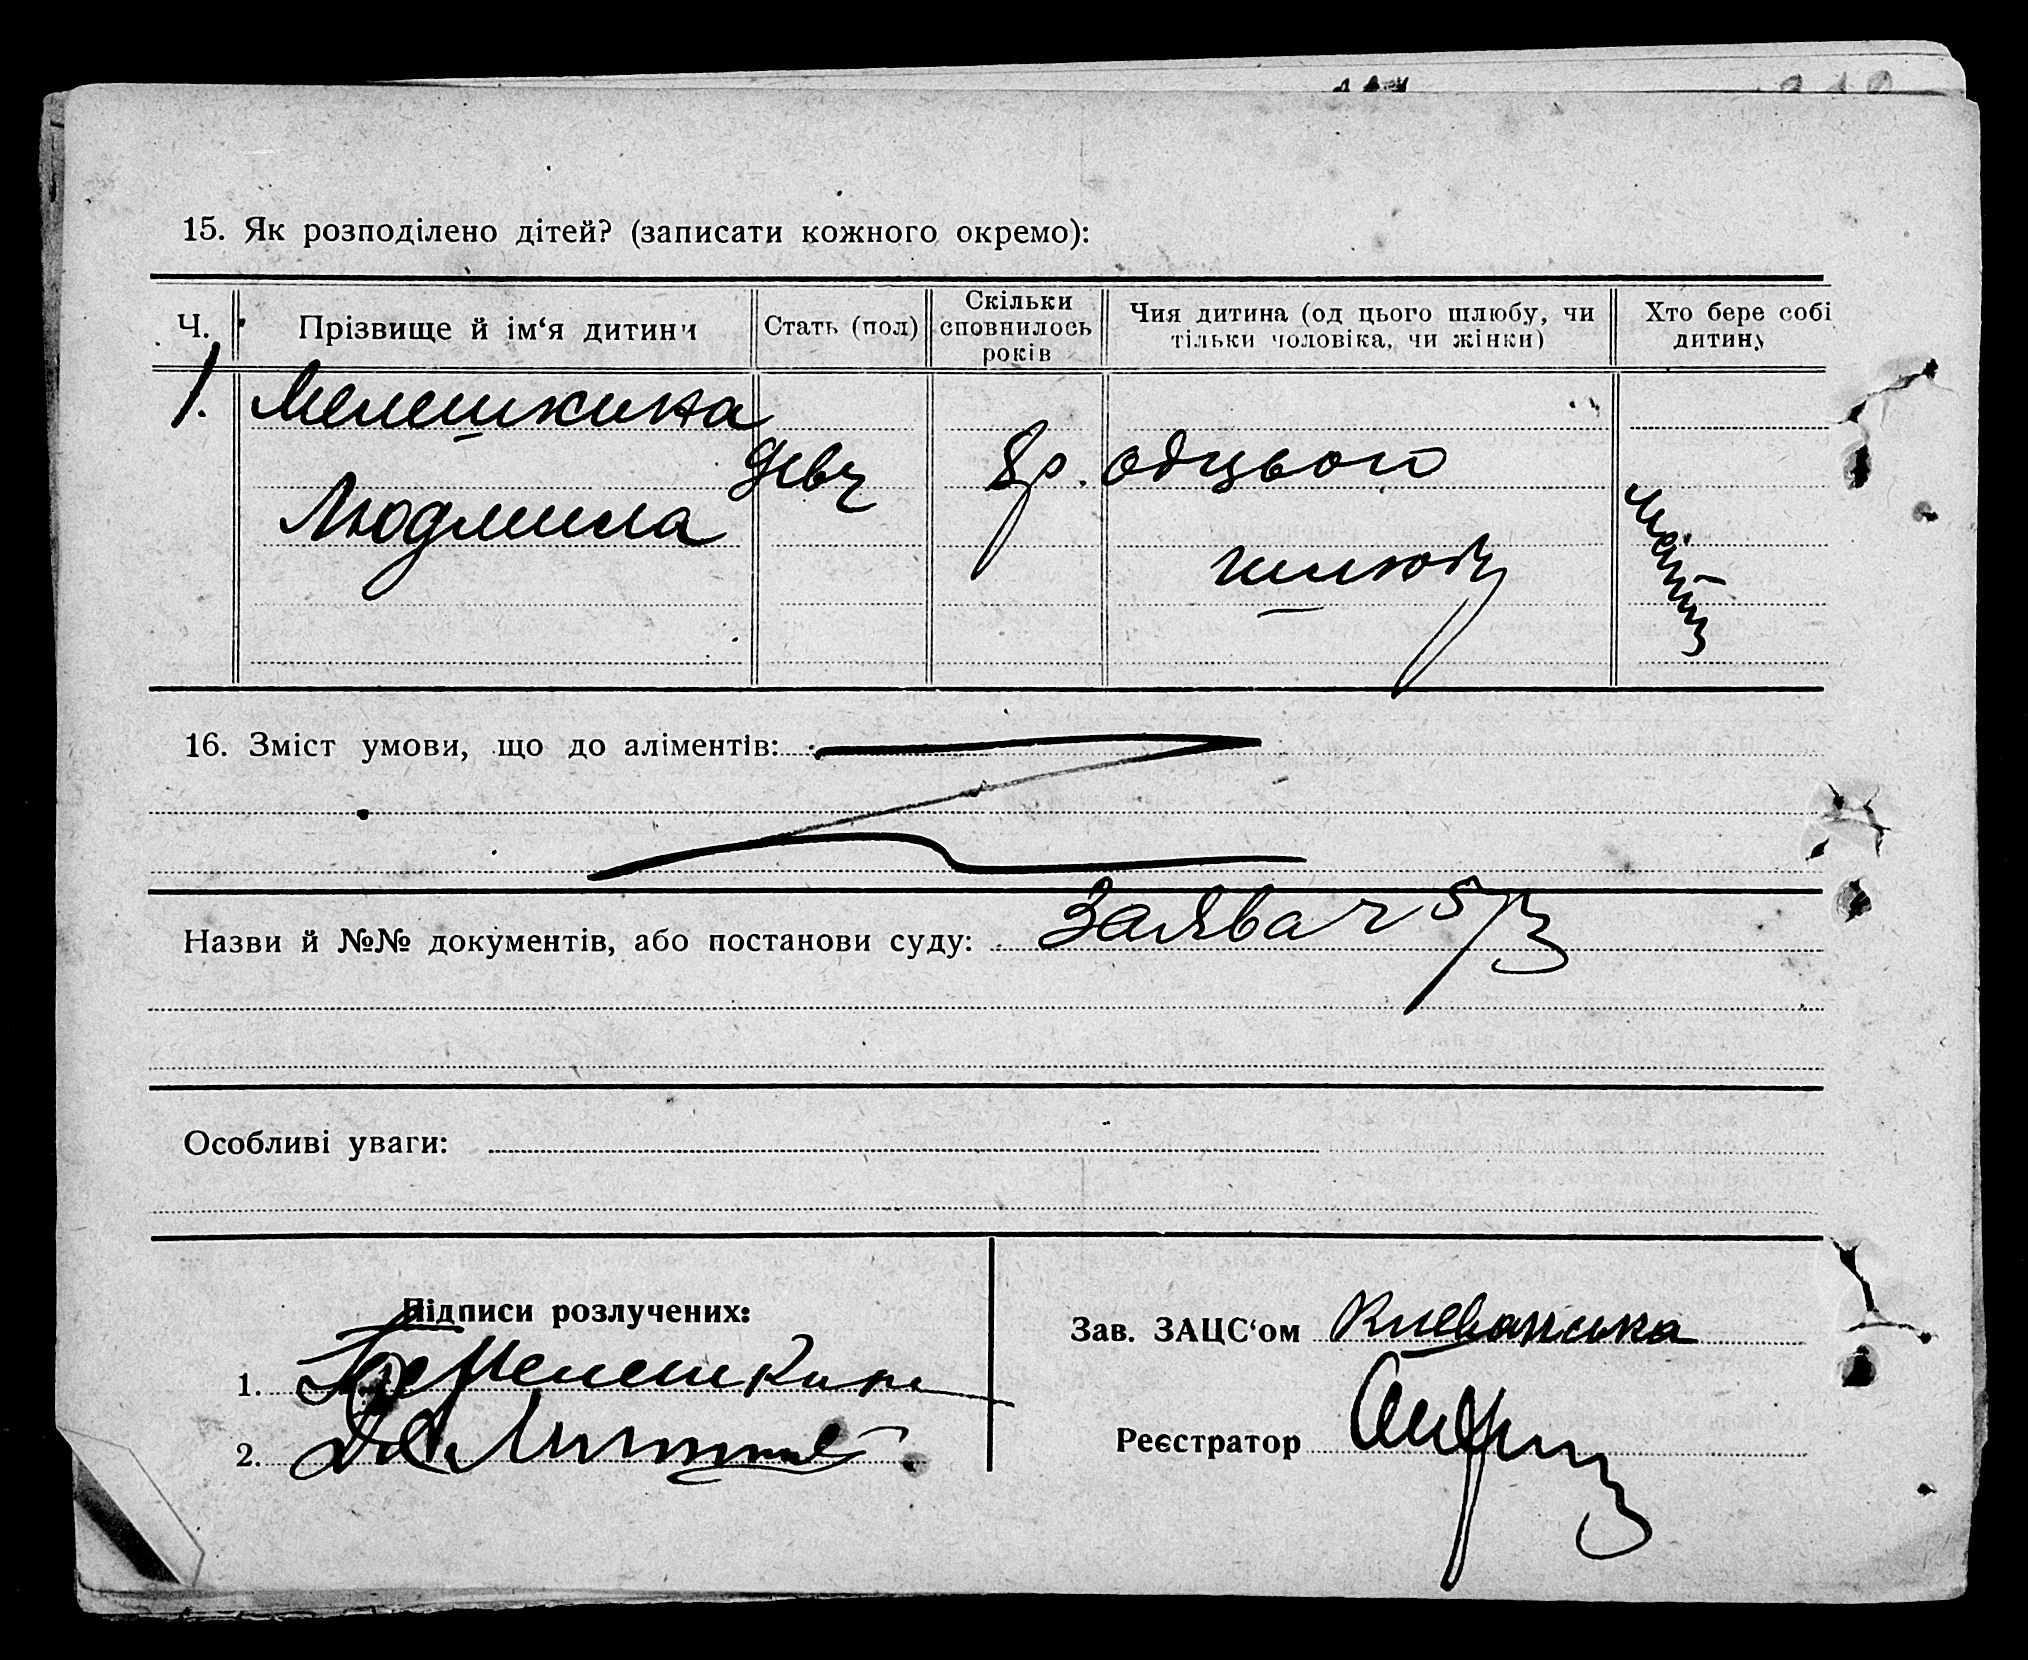 15. Як розподілено дітей? (записати кожного окремо):
Ч.
Прізвище й ім‘я дитини
Стать (пол)
Скільки сповнилось років
Чия дитина (од цього шлюбу, чи тільки чоловіка, чи жінки)
Хто бере собі дитину
1. Мелешкина
Людмила
девч
8 р.
од цього
шлюбу
мати
16. Зміст умови, що до аліментів:
Назви й №№ документів, або постанови суду: Заява ч 5/3
Особливі уваги:
Підписи розлучених:
1. Мелешкина
2.
Зав. ЗАЦС‘ом
Реєстратор